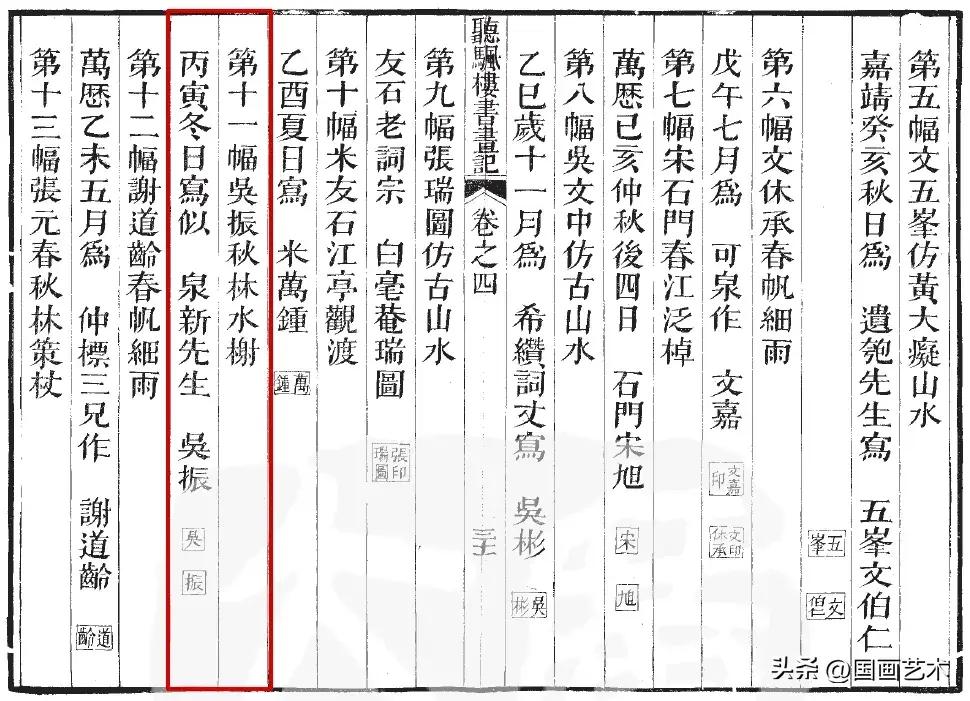 第五幅文五峯仿黃大癡山水
嘉靖癸亥秋日爲　遺匏先生寫　五峯文伯仁
五峯
文伯仁
第六幅文休承春帆細雨
戊午七月爲　可泉作　文嘉
文嘉印
文印休承
第七幅宋石門春江泛棹
萬歴己亥仲秋後四日　石門宋旭
宋
旭
第八幅吳文中仿古山水
乙巳歲十一月爲　希纘詞丈寫　吳彬
吳彬
聽颿樓書畫記　卷之四
第九幅張瑞圖仿古山水
友石老詞宗　白毫菴瑞圖
張印瑞圖
第十幅米友石江亭觀渡
乙酉夏日寫　米萬鍾
萬鍾
第十一幅吳振秋林水榭
丙寅冬日寫似　泉新先生　吳振
吳
振
第十二幅謝道齡春帆細雨
萬歴乙未五月爲　仲標三兄作　謝道齡
道齡
第十三幅張元春秋林策杖
头条 @国画艺术